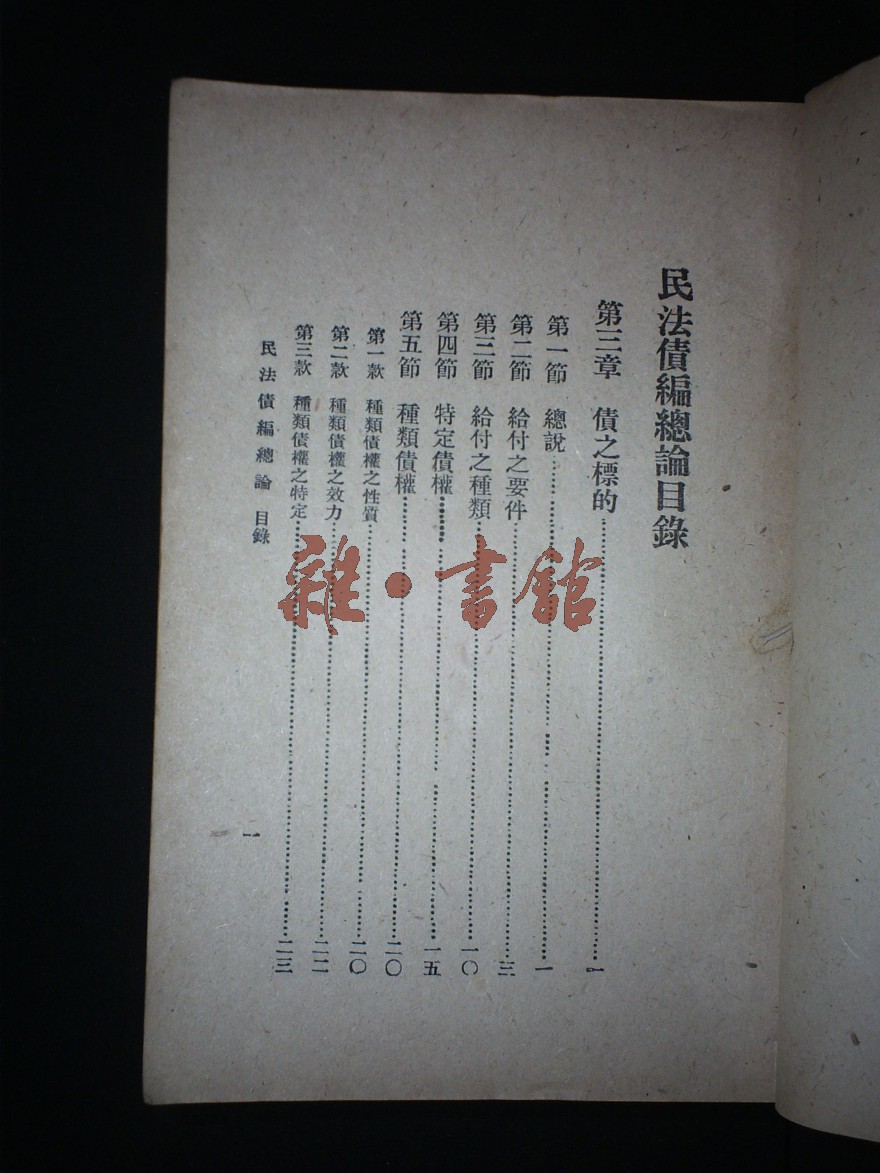 民法債編總論目錄
第三章 債之標的……一
第一節 總說……一
第二節 給付之要件……三
第三節 給付之種類……一〇
第四節 特定債權……一五
第五節 種類債權……二〇
第一款 種類債權之性質……二〇
第二款 種類債權之效力……二二
第三款 種類債權之特定……二三
民法債編總論 目錄
一
雜·書館